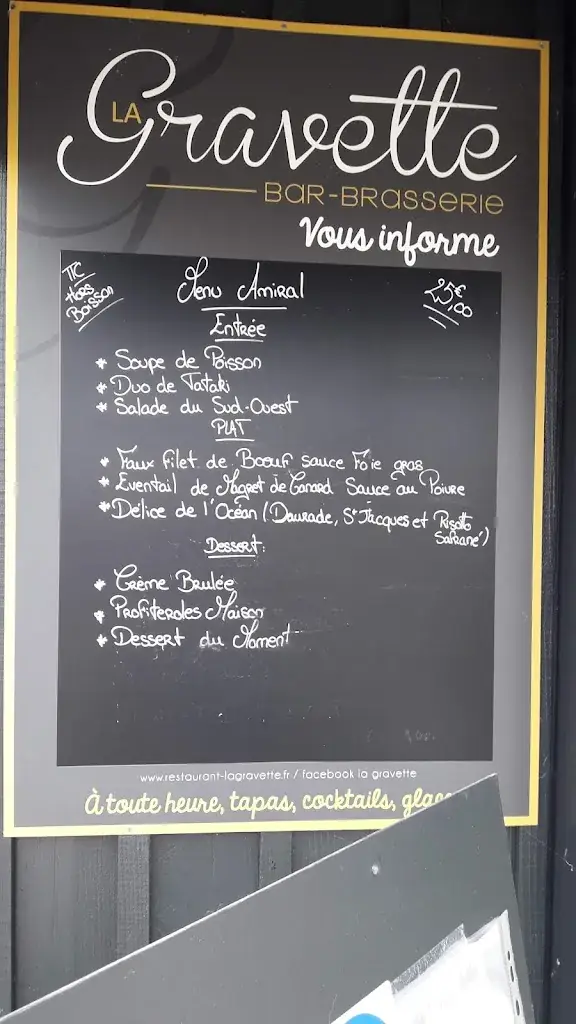 LA Gravette
BAR-BRASSERIE
Vous informe
TTC
Hors
Boisson
Menu Amiral
25,00€
Entrée
* Soupe de Poisson
* Duo de Tataki
* Salade du Sud-Ouest
PLAT
* Faux filet de Boeuf sauce Foie gras
* Eventail de Magret de Canard Sauce au Poivre
* Délice de l'Océan (Daurade, St Jacques et Risotto
Safrané)
Dessert:
* Crème Brulée
* Profiteroles Maison
* Dessert du Moment
www.restaurant-lagravette.fr / facebook la gravette
À toute heure, tapas, cocktails,